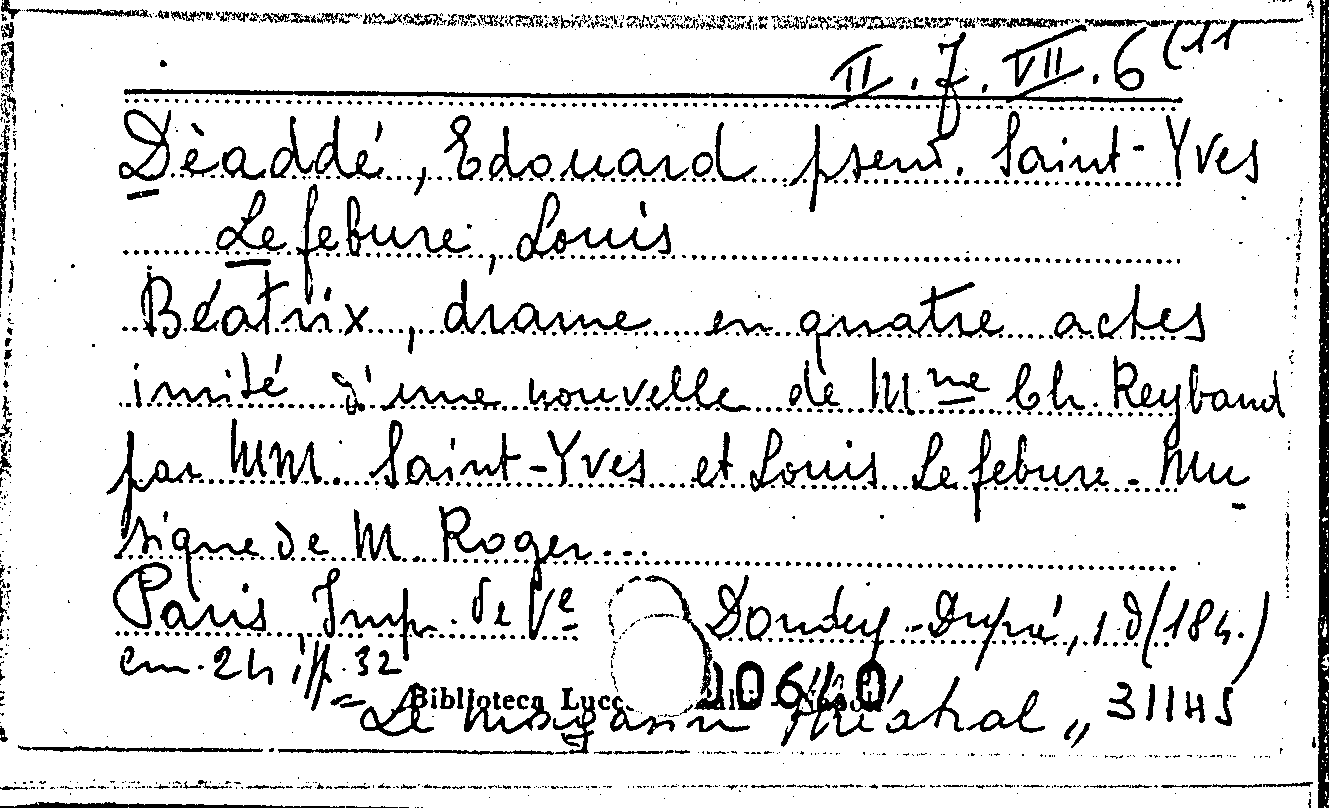 II. 7. VII. 6 (11
Dèaddé, Edouard pseud. Saint-Yves
Lefebure, Louis
Béatrix, drame en quatre actes
imité d'une nouvelle de Mme Ch. Reybaud
par MM. Saint-Yves et Louis Lefebure. Mu
sique de M. Roger...
Paris, Imp. de Ve Dondey-Dupré, s d (184.)
cm. 24 pp. 32
Biblioteca Lucc
= Le magasin théatral „ 31145